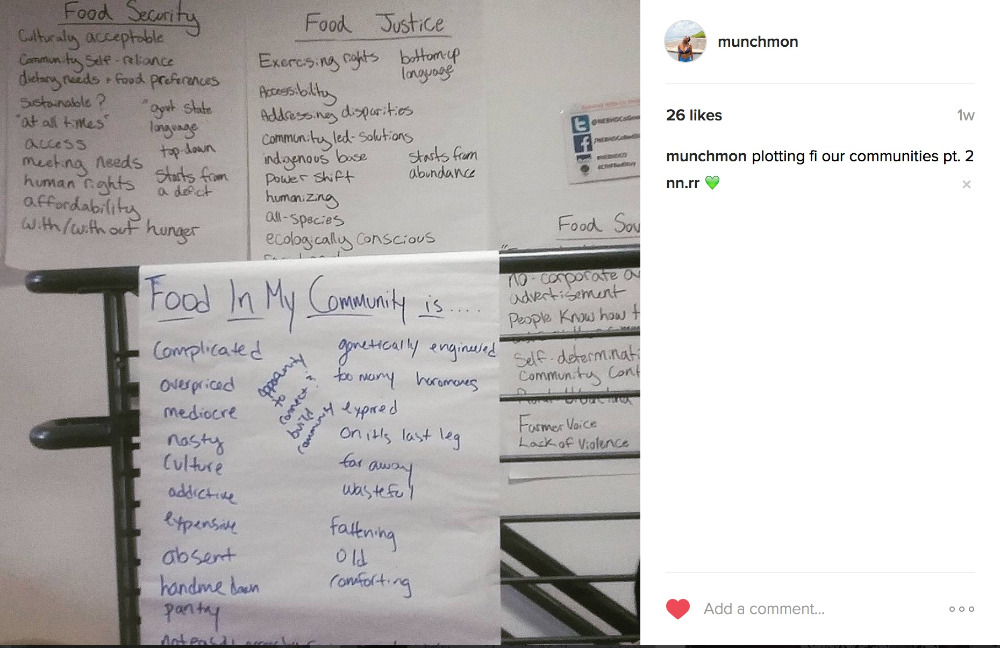 Food Security
Culturally acceptable
Community Self-reliance
dietary needs + food preferences
Sustainable?
"at all times"
access
meeting needs
human rights
affordability
with/without hunger
"govt state
language
top down
Starts from
a deficit
Food Justice
Exercising rights
Accessibility
Addressing disparities
Community led-solutions
indigenous base
power shift
humanizing
all-species
ecologically conscious
bottom-up
language
starts from
abundance
Food Sov
no corporate
advertisement
People Know how t
Self-determinati
Community Cont
Farmer Voice
Lack of Violence
Food In My Community is....
Complicated
overpriced
mediocre
nasty
Culture
addictive
expensive
absent
handme down
pantry
opportunity
to
connect &
build
community
genetically engineered
too many hormones
expired
on it's last leg
far away
wasteful
fattening
old
comforting
munchmon
26 likes
1w
munchmon plotting fi our communities pt. 2
nn.rr 💚
×
Add a comment...